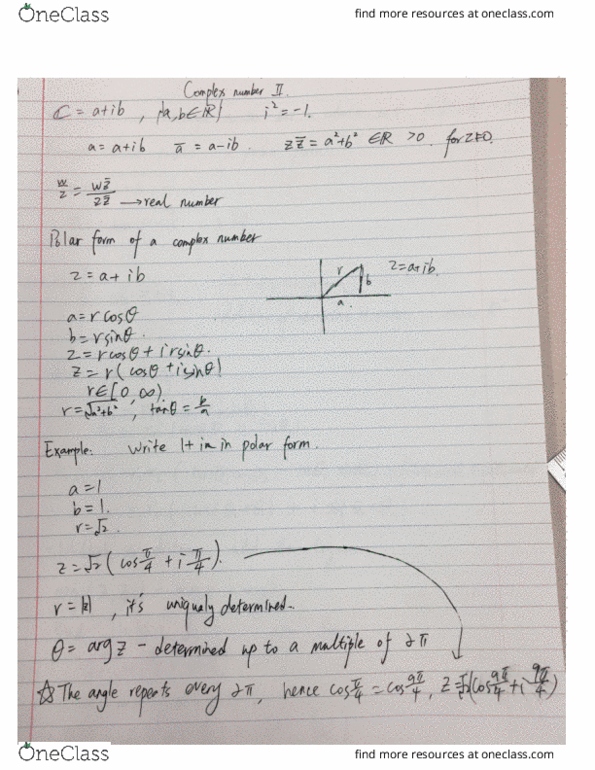 OneClass find more resources at oneclass.com
Complex number II.
C = a+ib , {a,b∈ℝ} i²=-1.
a = a+ib ā = a-ib. zz̄ = a²+b² ∈ℝ >0. for z≠0.
w/z = wz̄/zz̄ →real number
Polar form of a complex number
z = a+ ib
r b z=a+ib.
a.
a=rcosθ
b=rsinθ.
z=rcosθ+irsinθ.
z=r(cosθ+isinθ)
r∈[0,∞)
r=√a²+b² , tanθ=b/a
Example: write 1+i in polar form.
a=1
b=1.
r=√2.
z=√2(cosπ/4 + iπ/4).
r=|z| , it's uniqualy determined.
θ= argz - determined up to a multiple of 2π
☆ The angle repeats every 2π, hence cosπ/4=cos9π/4, z=√2(cos9π/4+i9π/4)
OneClass find more resources at oneclass.com